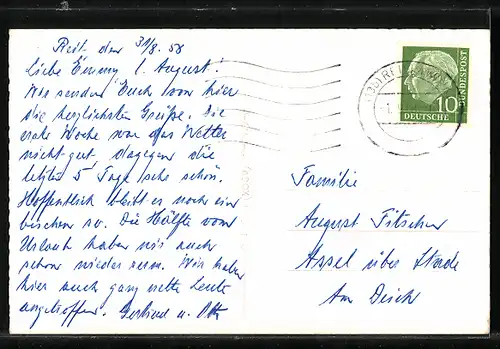 Reit den 31/8. 58
Liebe Emmy u. August!
Wir senden Euch von hier
die herzlichsten Grüße. Die
erste Woche war das Wetter
nicht gut, dagegen die
letzten 5 Tage sehr schön.
Hoffentlich bleibt es noch ein
bischen so. Die Hälfte vom
Urlaub haben wir auch
schon wieder rum. Wir haben
hier auch ganz nette Leute
angetroffen. Gertrud u. Otto
DEUTSCHE
BUNDESPOST
10
Familie
August Fitschen
Assel über Stade
Am Deich